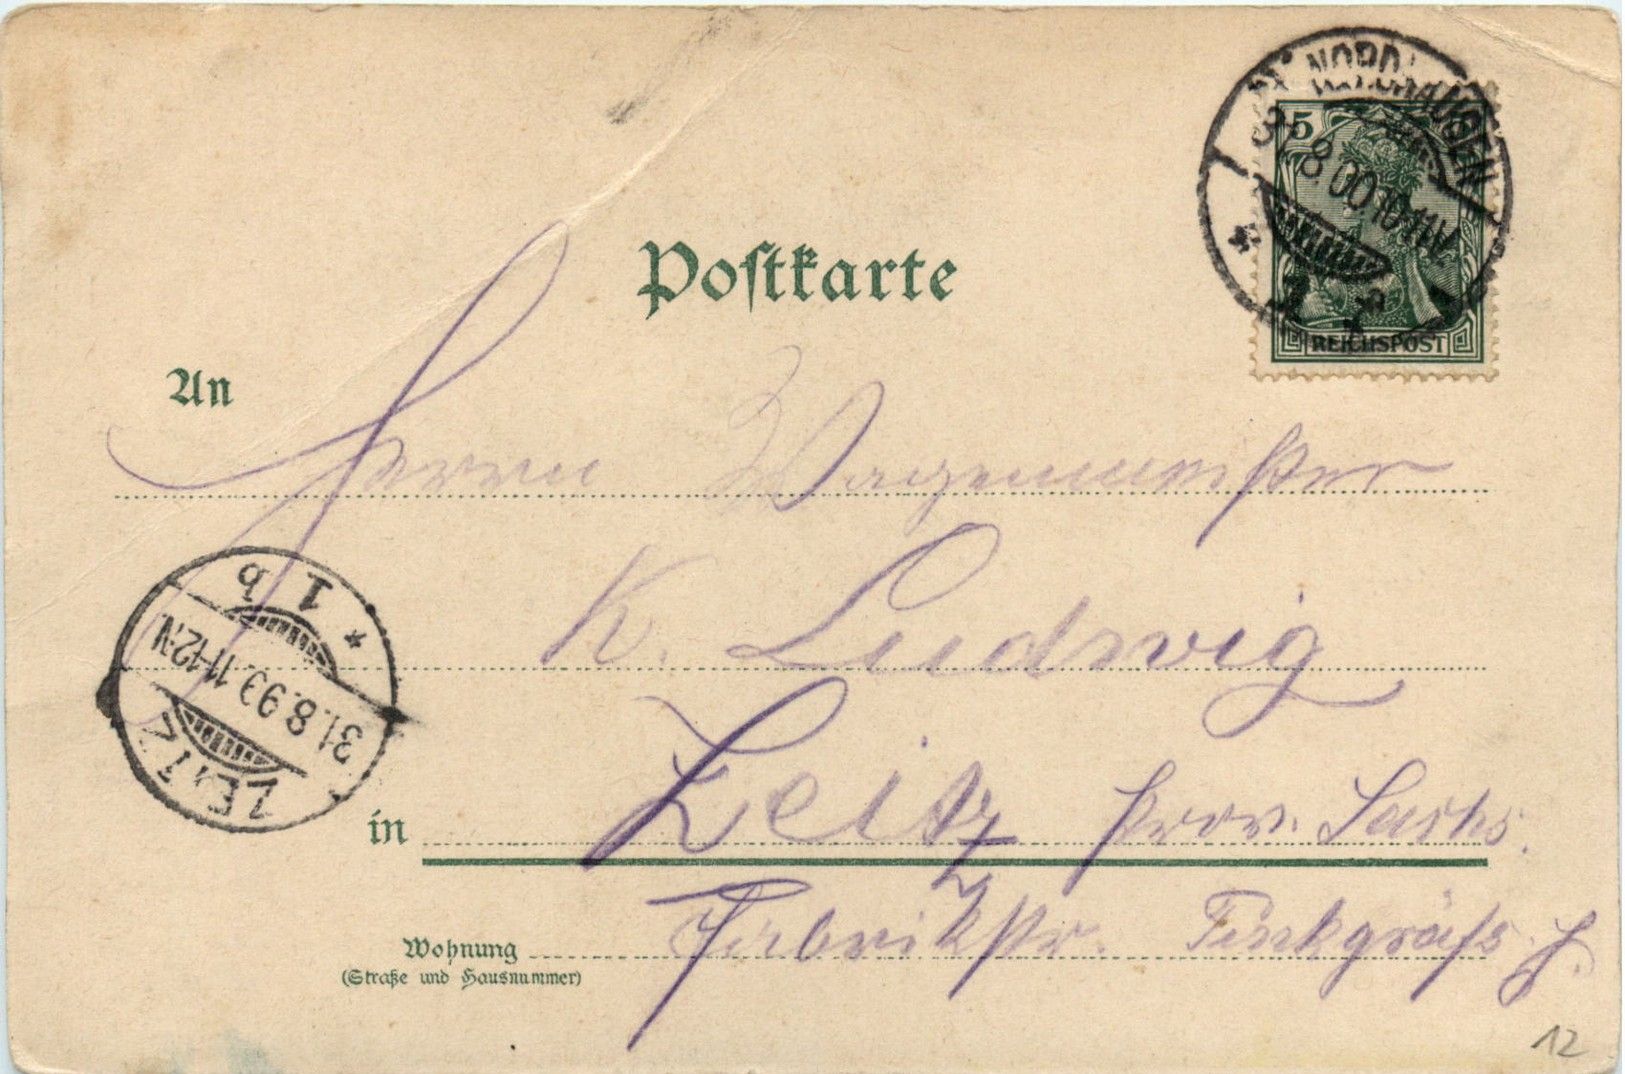 NORDHAUSEN
31.8.00.10-11V.
5
REICHSPOST
Postkarte
An
Herrn Wagenmeister
K. Ludwig
in Zeitz Prov. Sachs.
Wohnung Fabrikstr.
(Straße und Hausnummer)
1 b
11-12.N
ZEITZ
12